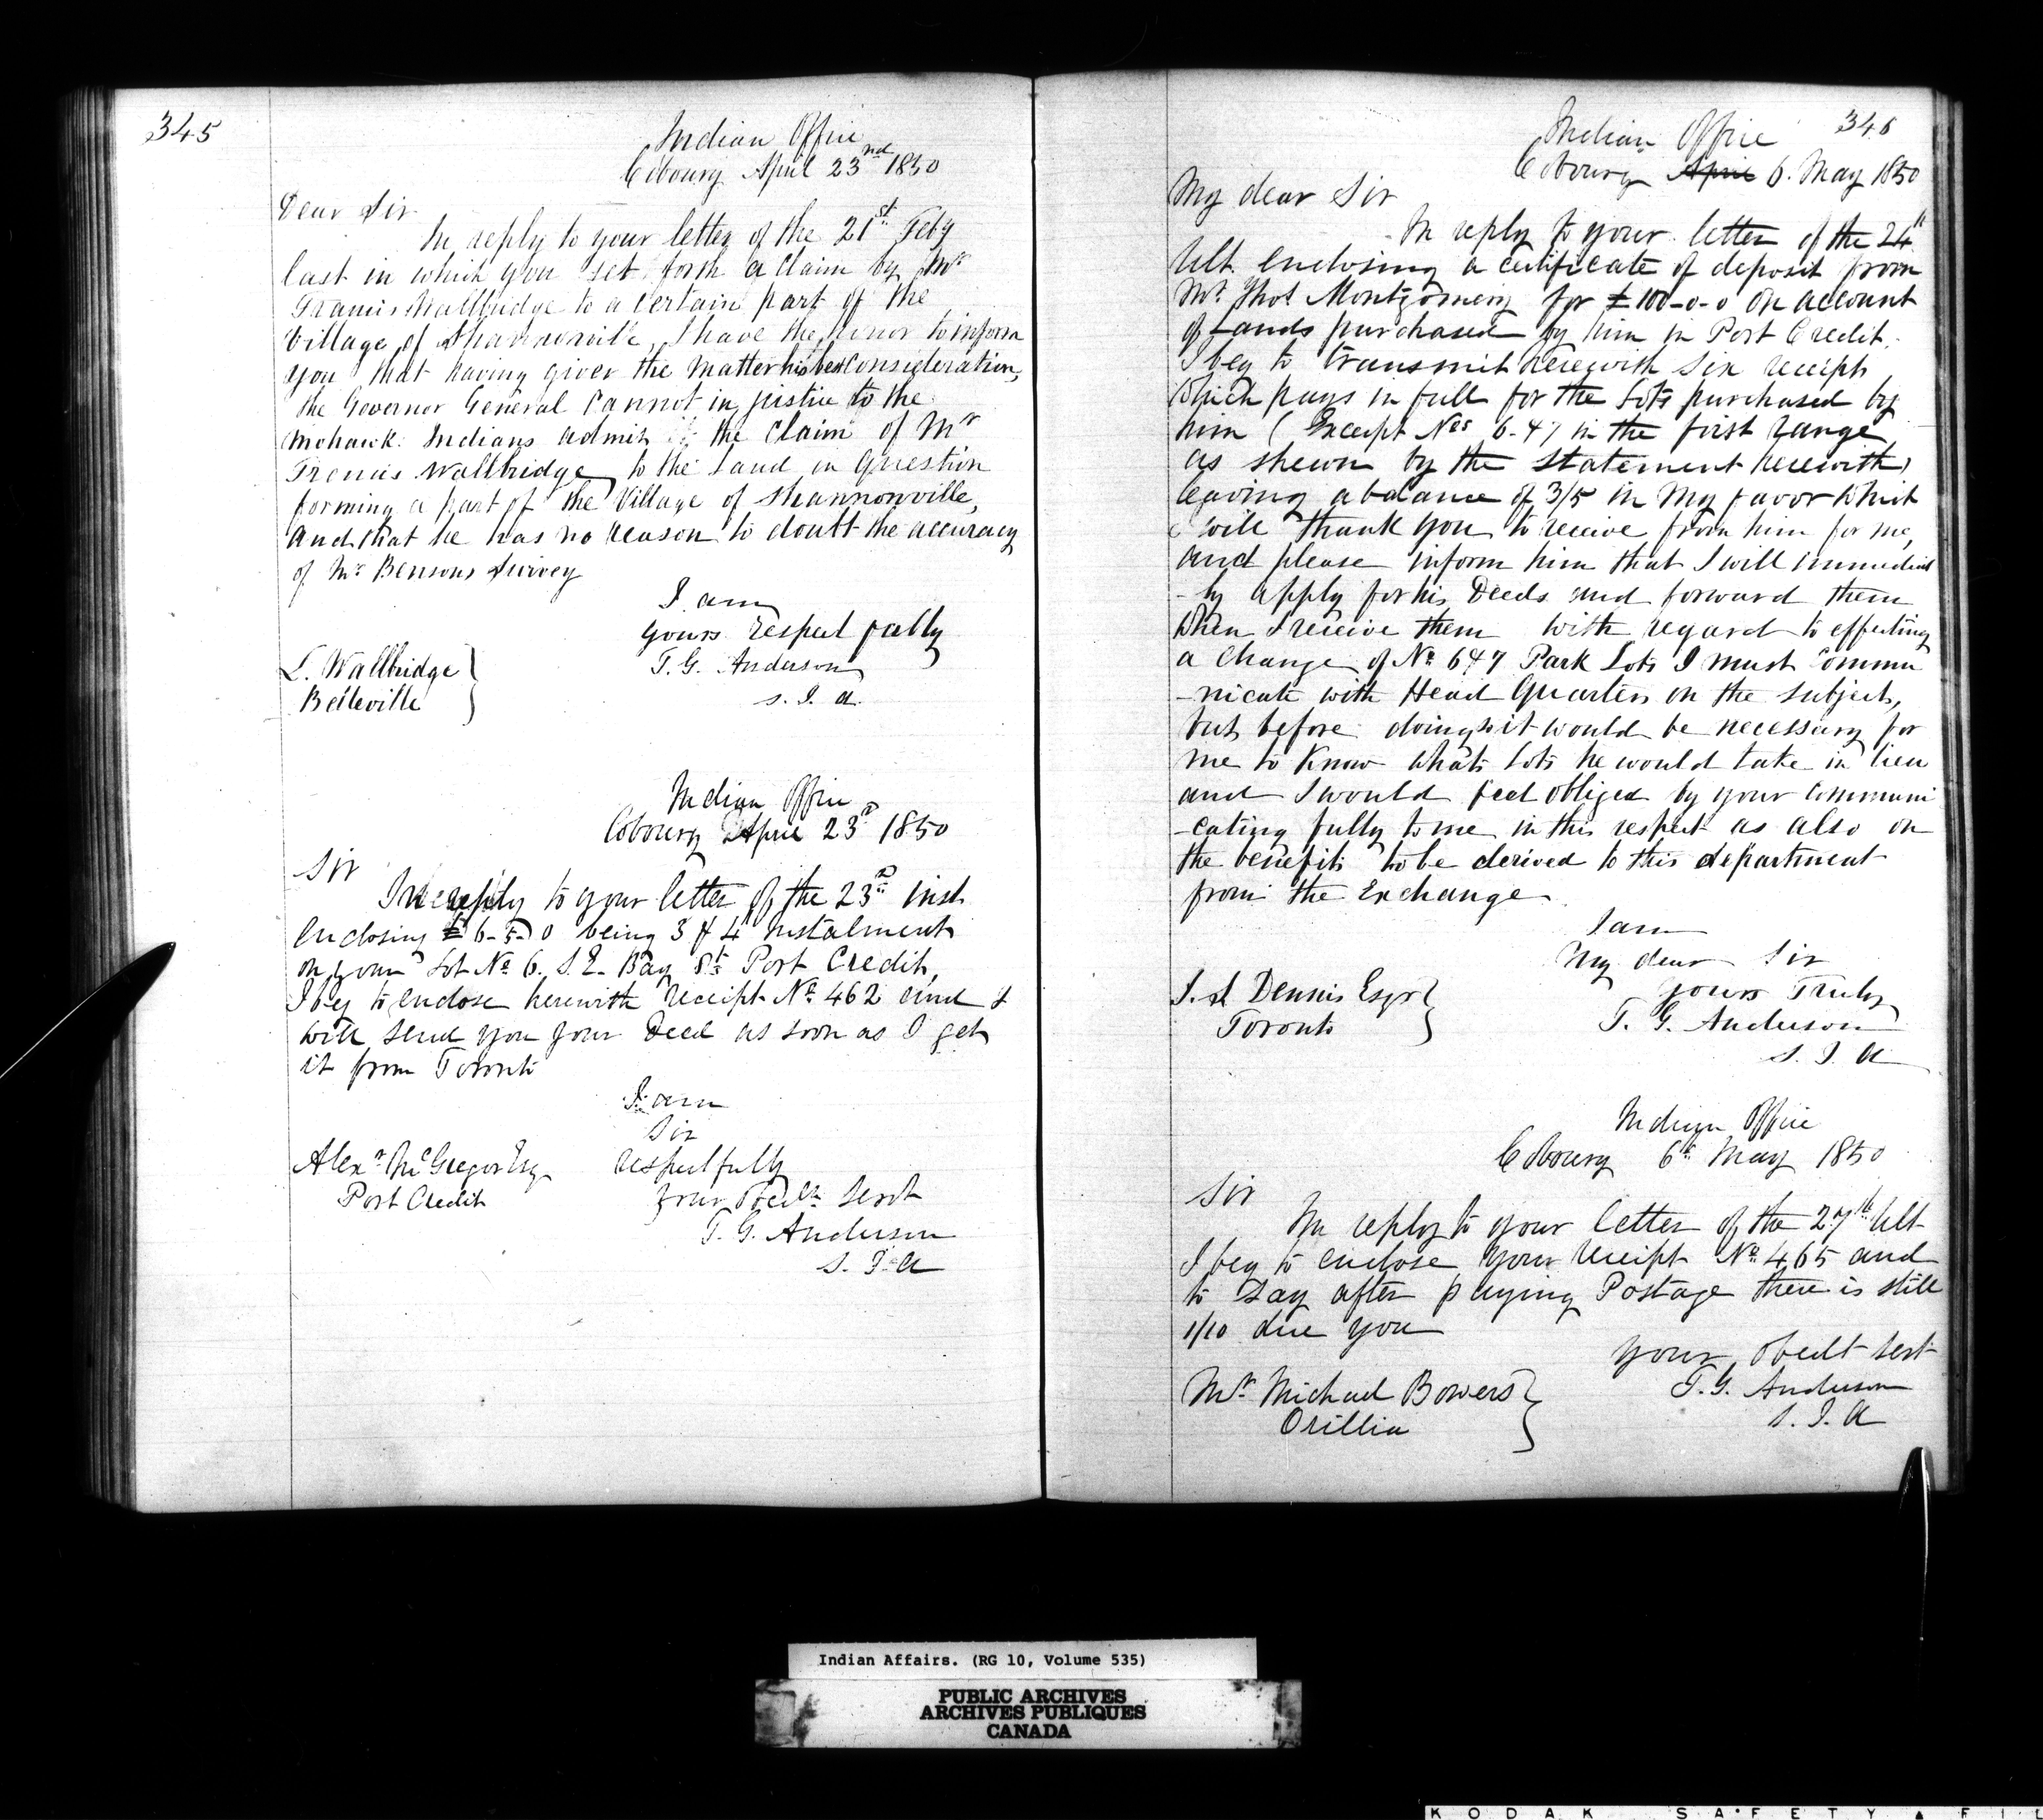 345
Indian Office
Cobourg April 23nd 1850
Dear Sir
In reply to your letter of the 21st Feby
last in which you set forth a claim by Mr
Francis Wallbridge to a certain part of the
Village of Shannonville, I have the honor to inform
you that having given the matter his best consideration,
the Governor General cannot in justice to the
Mohawk Indians admit the claim of Mr
Francis Wallbridge to the Land in question
forming a part of the Village of Shannonville,
and that he has no reason to doubt the accuracy
of Mr Bensons Survey
I am
yours respectfully
T. G. Anderson
S. I. A.
L. Wallbridge
Belleville
Indian Office
Cobourg April 23d 1850
Sir
In reply to your letter of the 23d inst
enclosing £6-5-0 being 3 & 4 instalments
on your Lot No 6. S. E. Bay St Port Credit,
I beg to enclose herewith receipt No 462 and I
will send you your Deed as soon as I get
it from Toronto
I am
Sir
respectfully
your Obedt Servt
T. G. Anderson
S. I. A
Alexr McGregor Esq
Port Credit
346
Indian Office
Cobourg April 6. May 1850
My dear Sir
In reply to your letter of the 24th
Ult. enclosing a certificate of deposit from
Mr Thos Montgomery for £100-0-0 on account
of Lands purchased by him in Port Credit.
I beg to transmit herewith six receipts
which pays in full for the Lots purchased by
him (Except Nos 6-47 in the first range
as shewn by the Statement herewith)
leaving a balance of 3/5 in my favor which
I will thank you to receive from him for me,
and please inform him that I will immediate
-ly apply for his Deeds and forward them
when I receive them with regard to effecting
a change of No 647 Park Lots I must commu
-nicate with Head Quarters on the subject,
but before doing so it would be necessary for
me to Know what Lots he would take in lieu
and I would feel obliged by your communi
-cating fully to me in this respect as also on
the benefits to be derived to this department
from the Exchange
I am
My dear Sir
yours Truly
T. G. Anderson
S. I. A
J. S Dennis Esqr
Toronto
Indian Office
Cobourg 6th May 1850
Sir
In reply to your letter of the 27th Ult
I beg to enclose your receipt No 465 and
to say after paying Postage there is still
1/10 due you
your Obedt Sert
T. G. Anderson
S. I. A
Mr Michael Bowers
Orillia
Indian Affairs. (RG 10, Volume 535)
PUBLIC ARCHIVES
ARCHIVES PUBLIQUES
CANADA
KODAK SAFETY